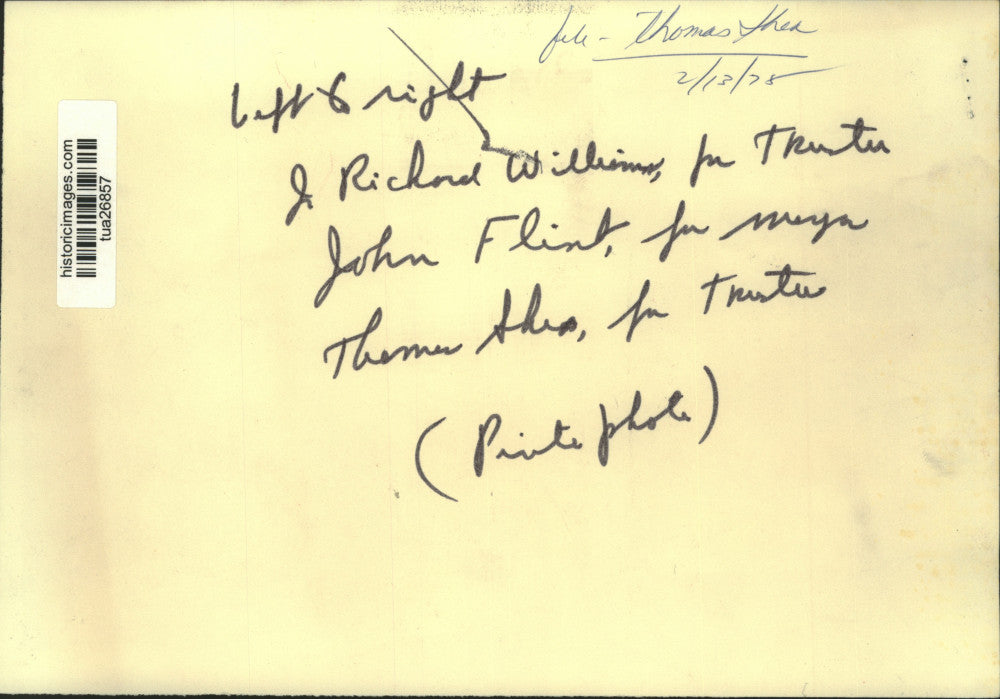 file - Thomas Shea
2/13/75
Left to right
J. Richard Williams, for Trustee
John Flint, for mayor
Thomas Shea, for Trustee
(Pirate photo)
historicimages.com
tua26857